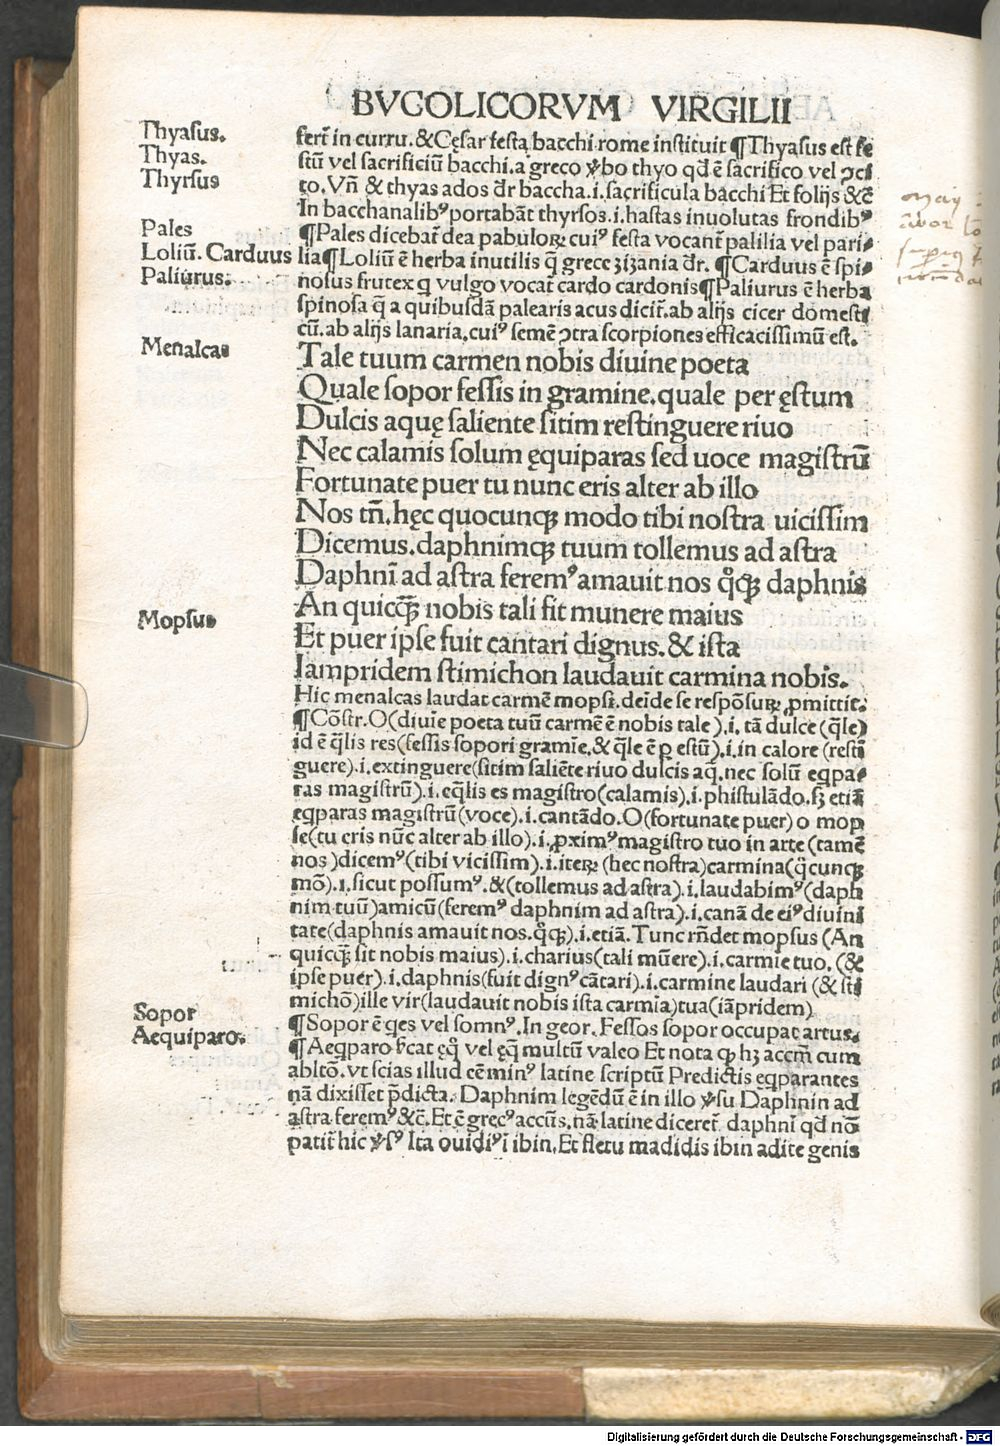 BVCOLICORVM VIRGILII
Thyasus.
Thyas.
Thyrsus
Pales
Loliū. Carduus
Paliurus.
Menalcas
Mopsus
Sopor
Aequiparo.
fert̄ in curru. &Cęsar festa bacchi rome instituit ¶Thyasus est fe
stū vel sacrificiū bacchi. a greco ꝟbo thyo qd̄ ē sacrifico vel ↄci
to. Vn̄ & thyas ados dr̄ baccha. i. sacrificula bacchi Et folijs &c̄
In bacchanalibꝰ portabāt thyrsos. i. hastas inuolutas frondibꝰ
¶Pales dicebat̄ dea pabuloꝝ cuiꝰ festa vocant̄ palilia vel pari-
lia¶Loliū ē herba inutilis q̄ grece zizania dr̄. ¶Carduus ē spi-
nosus frutex q vulgo vocat̄ cardo cardonis¶Paliurus ē herba
spinosa q̄ a quibusdā palearis acus dicit̄. ab alijs cicer domesti
cū. ab alijs lanaria, cuiꝰ semē ↄtra scorpiones efficacissimū est.
Tale tuum carmen nobis diuine poeta
Quale sopor fessis in gramine. quale per ęstum
Dulcis aquę saliente sitim restinguere riuo
Nec calamis solum ęquiparas sed uoce magistrū
Fortunate puer tu nunc eris alter ab illo
Nos tn̄. hęc quocunqꝫ modo tibi nostra uicissim
Dicemus. daphnimqꝫ tuum tollemus ad astra
Daphnī ad astra feremꝰ amauit nos qͦqꝫ daphnis
An quicqꝫ̄ nobis tali sit munere maius
Et puer ipse fuit cantari dignus. & ista
Iampridem stimichon laudauit carmina nobis.
Hic menalcas laudat carmē mopsi. deīde se respōsuꝝ ꝓmittit.
¶Cōstr. O(diuīe poeta tuū carmē ē nobis tale). i. tā dulce (q̄le)
id ē q̄lis res(fessis sopori gramīe, & q̄le ē ꝑ estū). i. in calore (resti
guere). i. extinguere(sitim saliēte riuo dulcis aq̄. nec solū eqpa-
ras magistrū). i. eq̄lis es magistro(calamis). i. phistulādo. sꝫ etiā
eqparas magistrū(voce). i. cantādo. O(fortunate puer) o mop
se(tu eris nūc alter ab illo). i. ꝓximꝰ magistro tuo in arte (tamē
nos )dicemꝰ(tibi vicissim). i. iteꝝ (hec nostra)carmina(q̄cunqꝫ
mō). i. sicut possumꝰ. &(tollemus ad astra). i. laudabimꝰ(daph
nim tuū)amicū(feremꝰ daphnim ad astra). i. canā de eiꝰ diuini
tate(daphnis amauit nos. qͦqꝫ). i. etiā. Tunc rn̄det mopsus (An
quicqꝫ̄ sit nobis maius). i. charius(tali mūere). i. carmīe tuo. (&
ipse puer). i. daphnis(fuit dignꝰ cātari). i. carmine laudari (& sti
michō)ille vir(laudauit nobis ista carmīa)tua(iāpridem)
¶Sopor ē qes vel somnꝰ. In geor. Fessos sopor occupat artus.
¶Aeqparo ficat eqͦ vel eq̄ multū valeo Et nota qͦ hꝫ accm̄ cum
abltō. vt scias illud cē minꝰ latine scriptū Predictis eqparantes
nā dixisset p̄dicta. Daphnim legēdū ē in illo ꝟsu Daphnin ad
astra feremꝰ &c̄. Et ē grecꝰ accūs. nā latine diceret daphnī qd̄ nō
patit̄ hic ꝟsꝰ Ita ouidiꝰ ī ibin. Et fletu madidis ibin adite genis
Digitalisierung gefördert durch die Deutsche Forschungsgemeinschaft - DFG